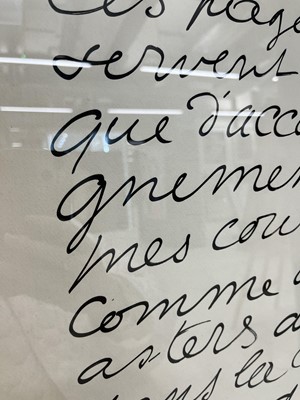 Ces page
servent
que d'acco
gnemen
mes cou
comme d
asters d
dans la